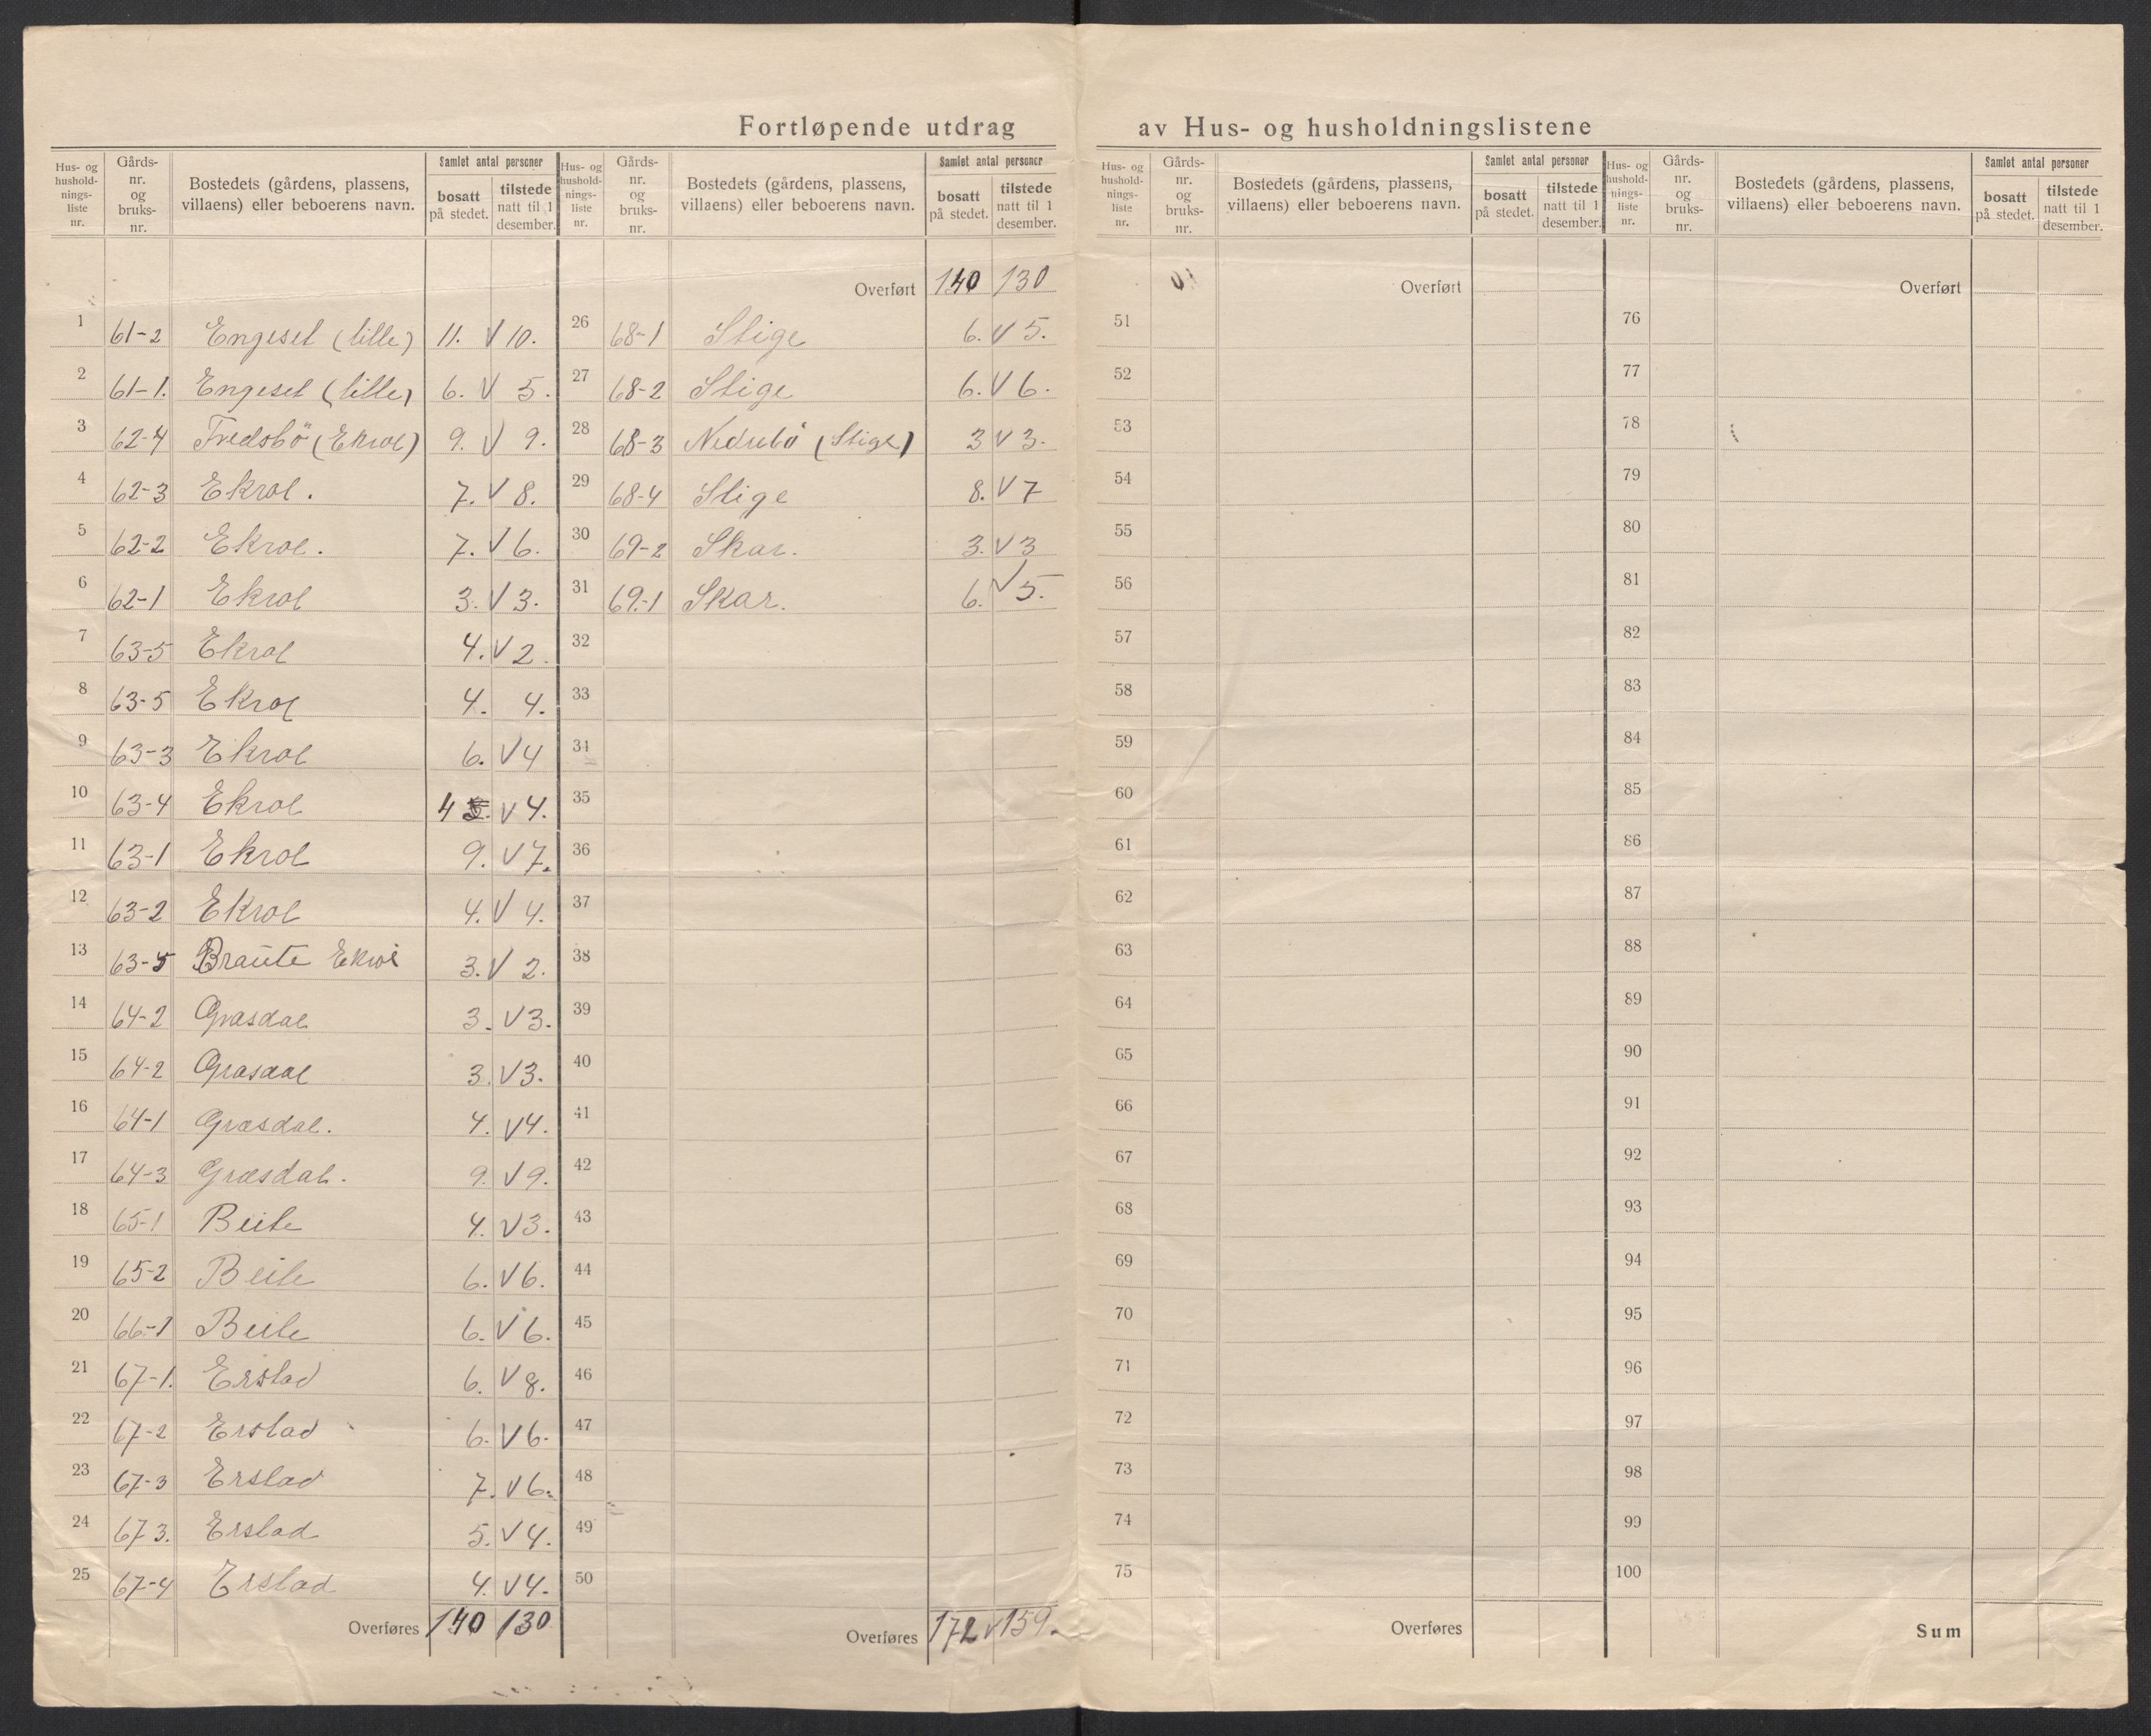 Fortløpende utdrag av Hus- og husholdningslistene
Hus- og hushold-nings-liste nr. Gårds-nr. og bruks-nr. Bostedets (gårdens, plassens, villaens) eller beboerens navn. Samlet antal personer bosatt på stedet. tilstede natt til 1 desember.
1 61-2 Engeset (lille) 11. V 10.
2 61-1. Engeset (lille) 6. V 5.
3 62-4 Fredsbö (Ekrol) 9. V 9.
4 62-3 Ekrol. 7. V 8.
5 62-2 Ekrol. 7. V 6.
6 62-1 Ekrol 3. V 3.
7 63-5 Ekrol 4. V 2.
8 63-5 Ekrol 4. 4.
9 63-3 Ekrol 6. V 4
10 63-4 Ekrol 4 V 4.
11 63-1 Ekrol 9. V 7.
12 63-2 Ekrol 4. V 4.
13 63-5 Braute Ekrol 3. V 2.
14 64-2 Grasdal 3. V 3.
15 64-2 Grasdal 3. V 3.
16 64-1 Grasdal. 4. V 4.
17 64-3 Grasdal. 9. V 9.
18 65-1 Beite 4. V 3.
19 65-2 Beite 6. V 6.
20 66-1 Beite 6. V 6.
21 67-1. Erstad 6. V 8.
22 67-2 Erstad 6. V 6.
23 67-3 Erstad 7. V 6.
24 67 3. Erstad 5. V 4.
25 67-4 Erstad 4. V 4.
Overføres 140 130
Hus- og hushold-nings-liste nr. Gårds-nr. og bruks-nr. Bostedets (gårdens, plassens, villaens) eller beboerens navn. Samlet antal personer bosatt på stedet. tilstede natt til 1 desember.
Overført 140 130
26 68-1 Stige 6. V 5.
27 68-2 Stige 6. V 6.
28 68-3 Nedrebö (Stige) 3 V 3.
29 68-4 Stige 8. V 7
30 69-2 Skar. 3. V 3
31 69.-1 Skar. 6. V 5.
32
33
34
35
36
37
38
39
40
41
42
43
44
45
46
47
48
49
50
Overføres 172 V 159.
Hus- og hushold-nings-liste nr. Gårds-nr. og bruks-nr. Bostedets (gårdens, plassens, villaens) eller beboerens navn. Samlet antal personer bosatt på stedet. tilstede natt til 1 desember.
Overført
51
52
53
54
55
56
57
58
59
60
61
62
63
64
65
66
67
68
69
70
71
72
73
74
75
Overføres
Hus- og hushold-nings-liste nr. Gårds-nr. og bruks-nr. Bostedets (gårdens, plassens, villaens) eller beboerens navn. Samlet antal personer bosatt på stedet. tilstede natt til 1 desember.
Overført
76
77
78
79
80
81
82
83
84
85
86
87
88
89
90
91
92
93
94
95
96
97
98
99
100
Sum